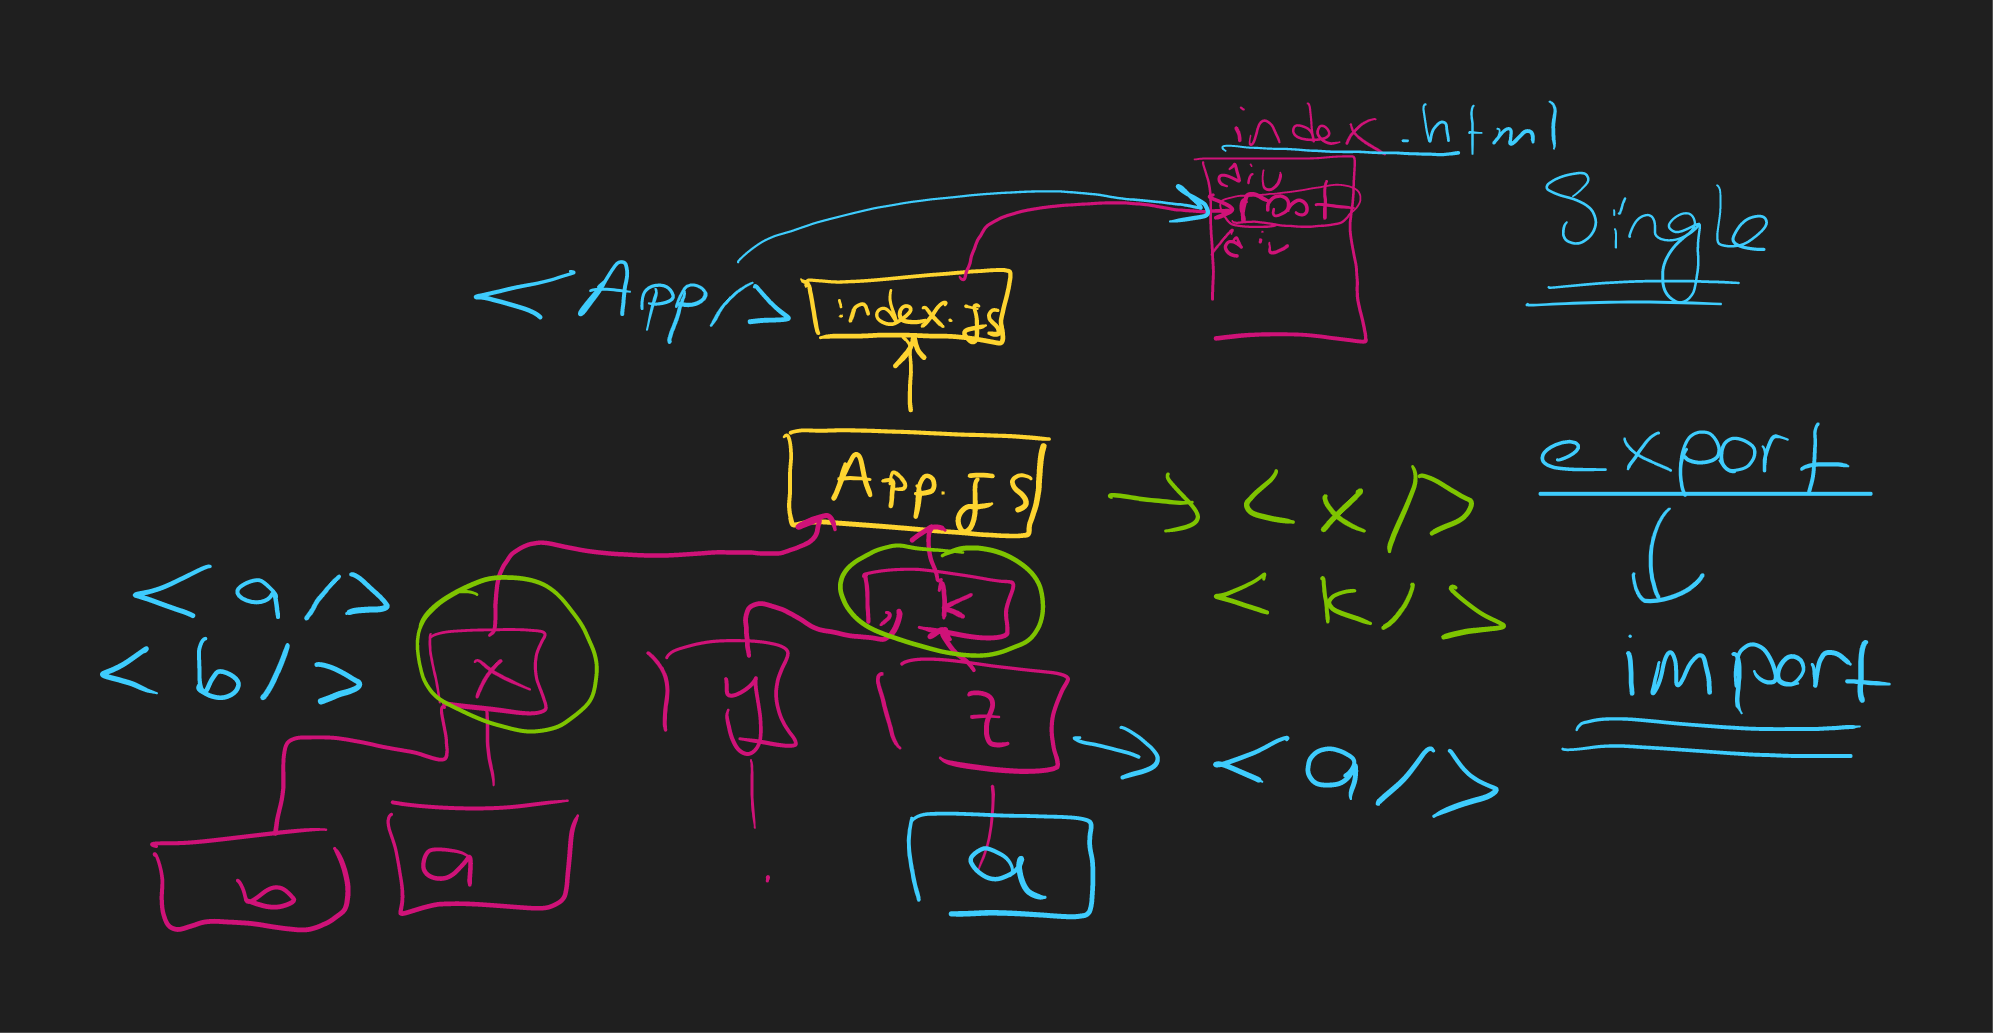 index.html
div
root
div
Single
<App/>
index.JS
App.JS
-> <x/>
<k/>
export
import
<a/>
<b/>
x
k
y
z
-> <a/>
b
a
a